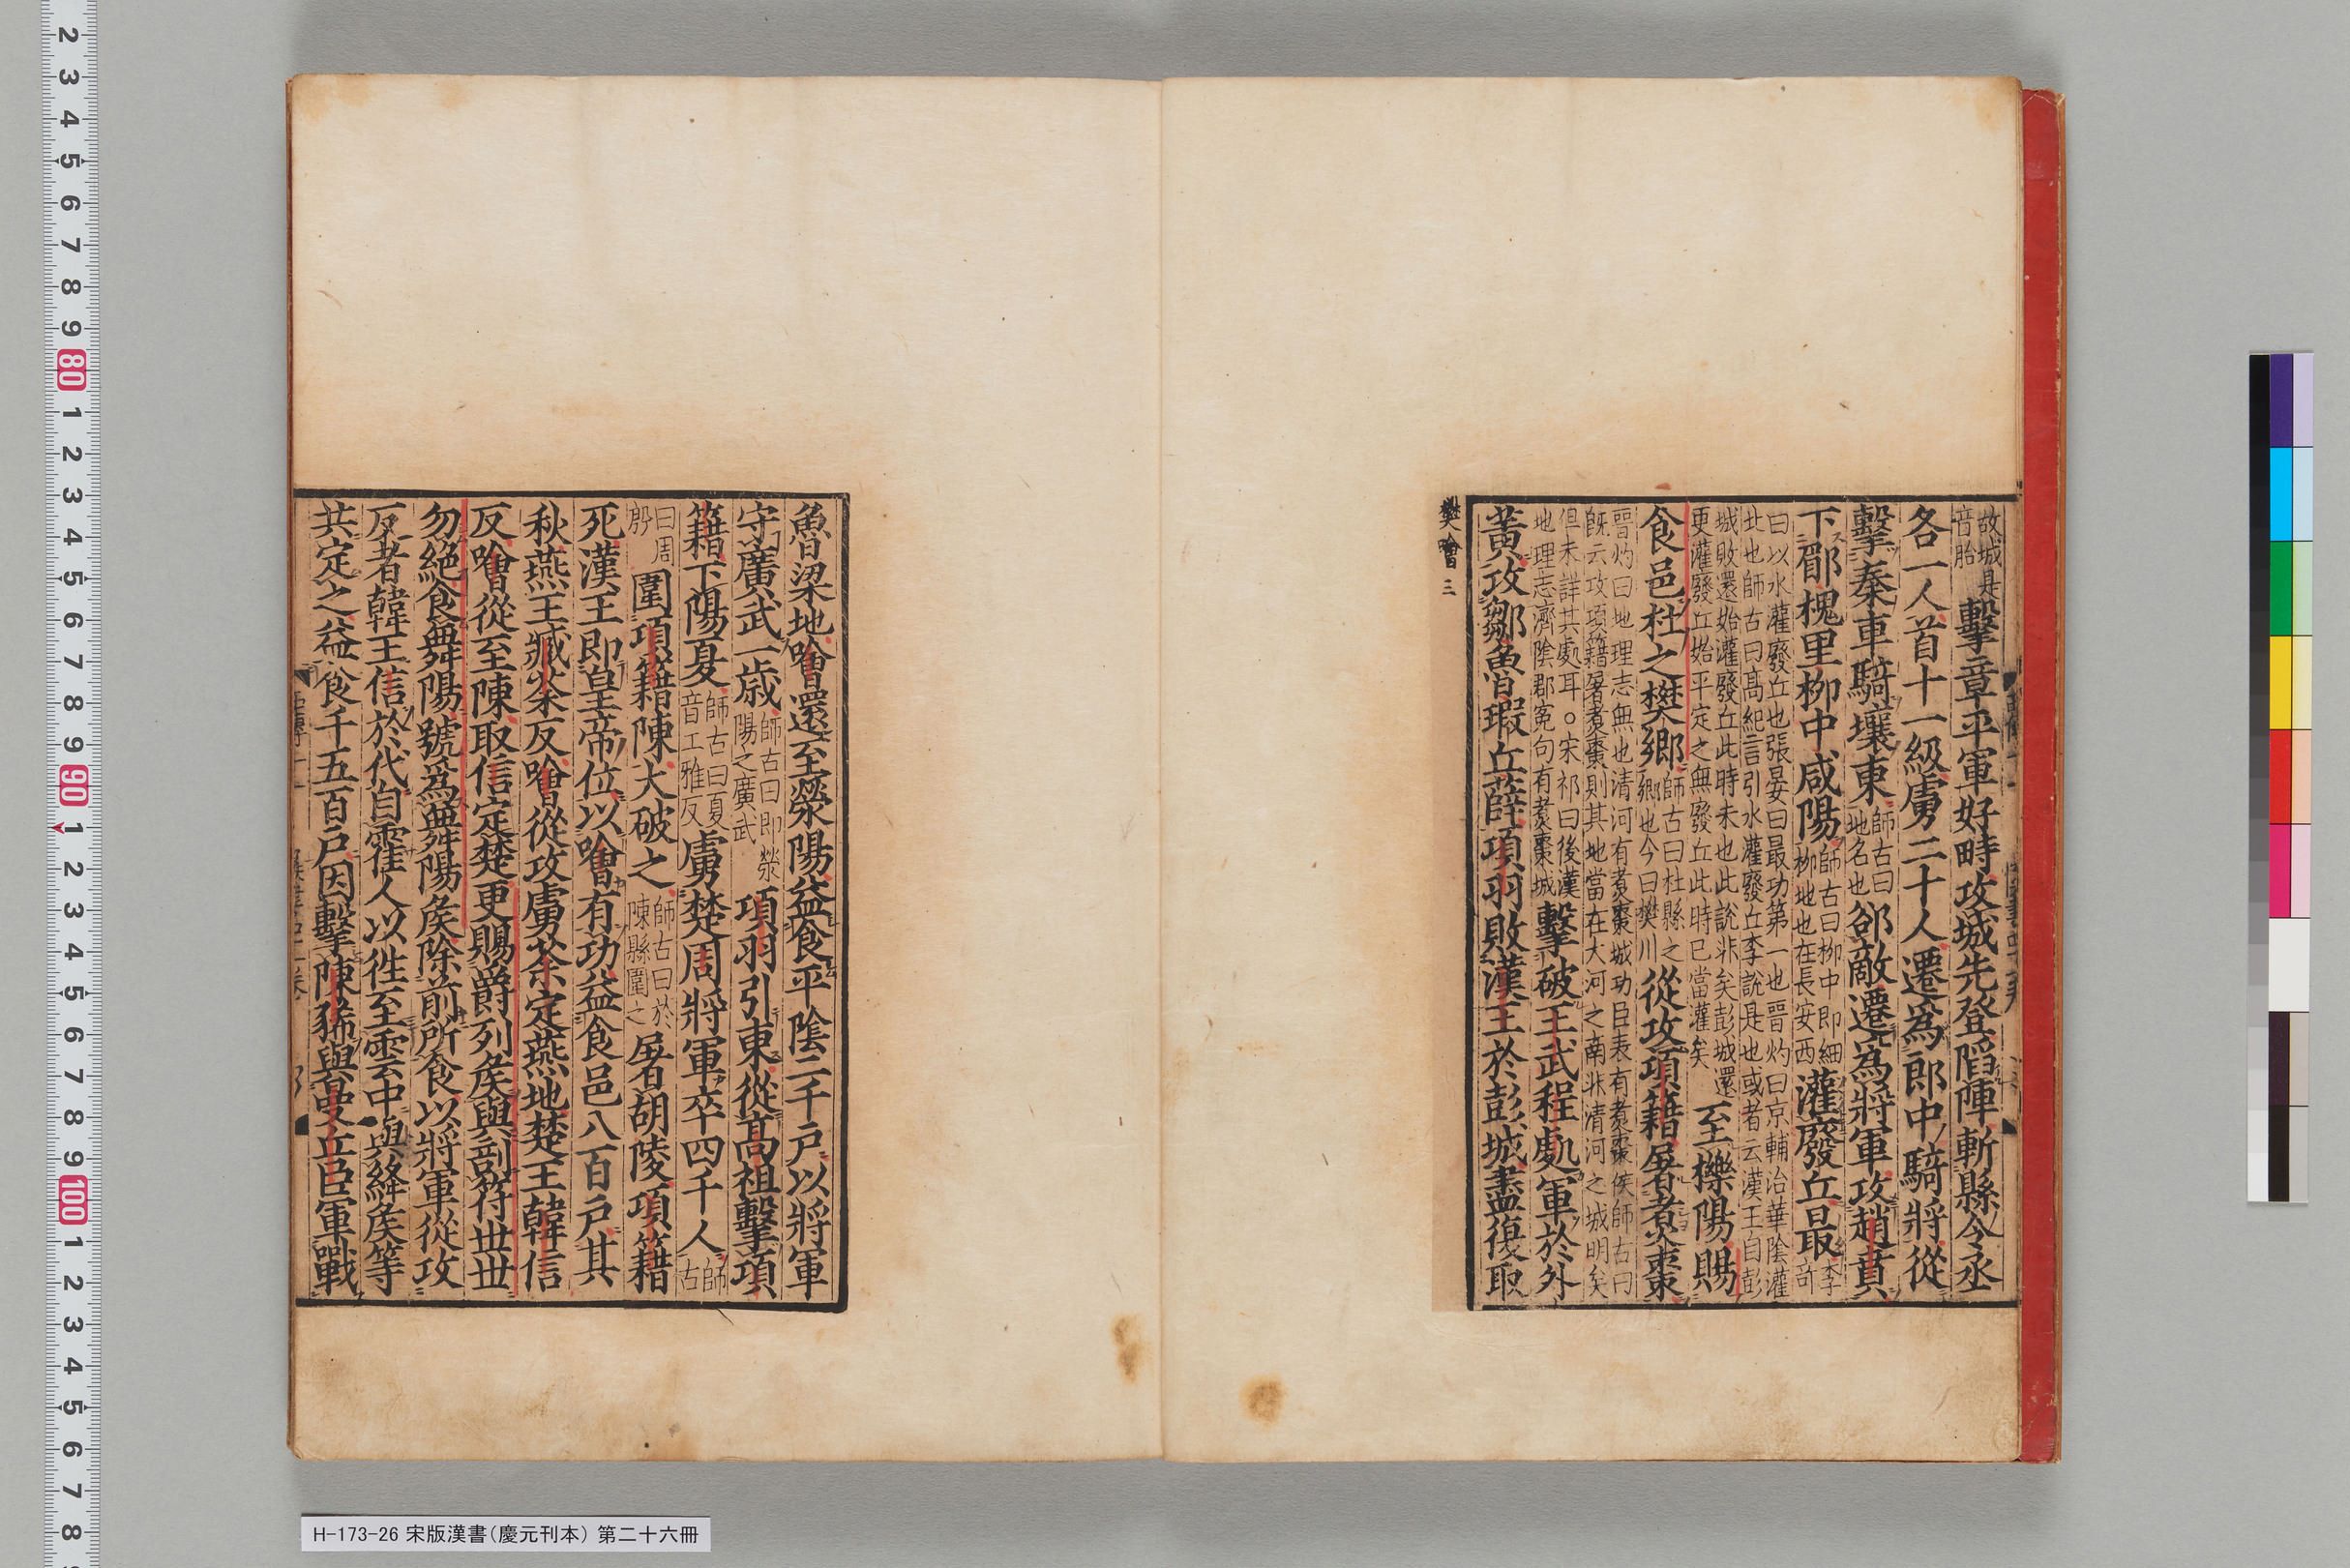 故城是
音胎
擊章平軍好畤攻城先登陷陣斬縣令丞
各一人首十一級虜二十人遷爲郎中騎將從
擊秦車騎壤東
師古曰
地名也
郤敵遷爲將軍攻趙賁
下郿槐里柳中咸陽
師古曰柳中即細
柳地也在長安西
灌廢丘最
李奇
曰以水灌廢丘也張晏曰最功第一也晉灼曰京輔治華陰灌
北也師古曰高紀言引水灌廢丘李說是也或者云漢王自彭
城敗還始灌廢丘此時未也此說非矣彭城還
更灌廢丘始平定之無廢丘此時已當灌矣
至櫟陽賜
食邑杜之樊鄉
師古曰杜縣之
鄉也今曰樊川
從攻項籍屠煑棗
晉灼曰地理志無也清河有煑棗城功臣表有煑棗侯師古曰
旣云攻項籍屠煑棗則其地當在大河之南非清河之城明矣
但未詳其處耳○宋祁曰後漢
地理志濟陰郡寃句有煑棗城
擊破王武程處軍於外
黃攻鄒魯瑕丘薛項羽敗漢王於彭城盡復取
樊噲 三
魯梁地噲還至滎陽益食平陰二千戶以將軍
守廣武一歲
師古曰即滎
陽之廣武
項羽引東從高祖擊項
籍下陽夏
師古曰夏
音工雅反
虜楚周將軍卒四千人
師古
曰周
殷
圍項籍陳大破之
師古曰於
陳縣圍之
屠胡陵項籍
死漢王即皇帝位以噲有功益食邑八百戶其
秋燕王臧荼反噲從攻虜荼定燕地楚王韓信
反噲從至陳取信定楚更賜爵列矦與剖符丗丗
勿絕食舞陽號爲舞陽矦除前所食以將軍從攻
反者韓王信於代自霍人以徃至雲中與絳矦等
共定之益食千五百戶因擊陳豨與曼丘臣軍戰
H-173-26 宋版漢書（慶元刊本） 第二十六冊